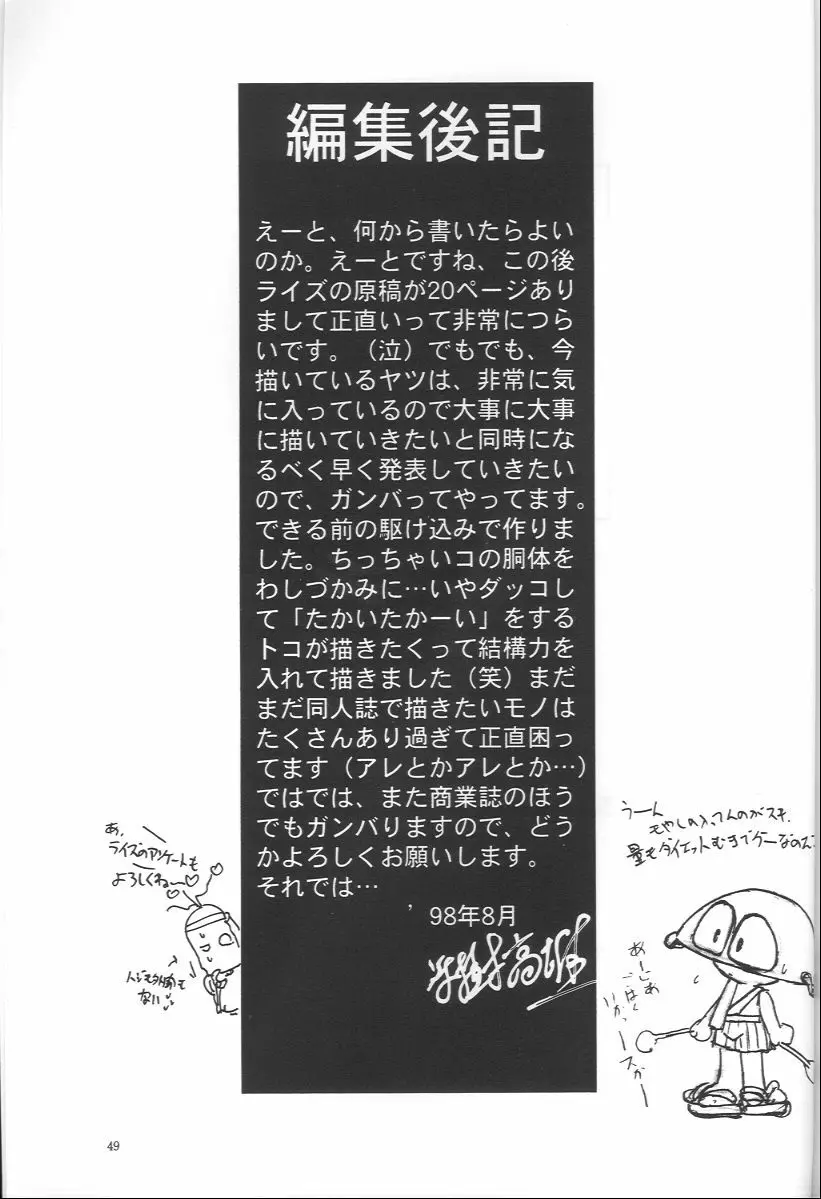 編集後記
えーと、何から書いたらよい
のか。えーとですね、この後
ライズの原稿が20ページあり
まして正直いって非常につら
いです。（泣）でもでも、今
描いているヤツは、非常に気
に入っているので大事に大事
に描いていきたいと同時にな
るべく早く発表していきたい
ので、ガンバってやってます。
できる前の駆け込みで作りま
した。ちっちゃいコの胴体を
わしづかみに…いやダッコし
て「たかいたかーい」をする
トコが描きたくって結構力を
入れて描きました（笑）まだ
まだ同人誌で描きたいモノは
たくさんあり過ぎて正直困っ
てます（アレとかアレとか…）
ではでは、また商業誌のほう
でもガンバりますので、どう
かよろしくお願いします。
それでは…
’98年8月
あ、
ライズのアンケートも
よろしくね
うーん
49